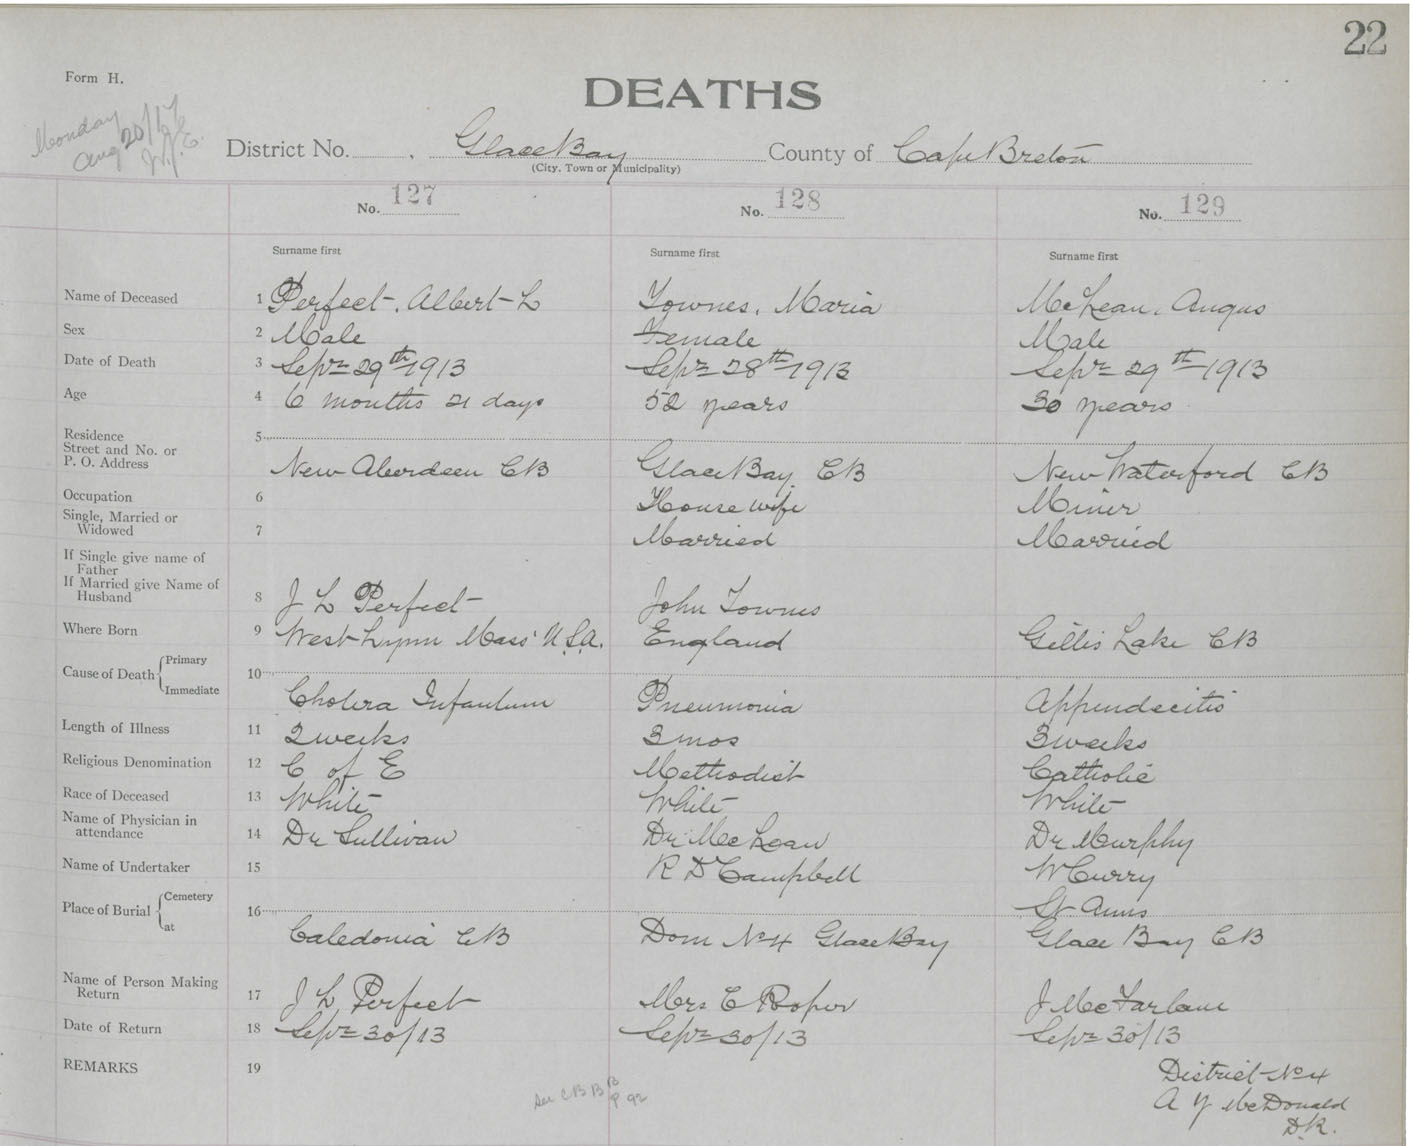 22
Form H.
DEATHS
Monday
Aug 20/17
District No. . Glace Bay County of Cape Breton
(City, Town or Municipality)
No. 127 No. 128 No. 129
Surname first Surname first Surname first
Name of Deceased 1 Perfect, Albert L Townes, Maria McLean, Angus
Sex 2 Male Female Male
Date of Death 3 Sept 29th 1913 Sept 28th 1913 Sept 29th 1913
Age 4 6 months 21 days 52 years 30 years
Residence 5
Street and No. or
P. O. Address New Aberdeen CB Glace Bay CB New Waterford CB
Occupation 6 House wife Miner
Single, Married or
Widowed 7 Married Married
If Single give name of
Father
If Married give Name of
Husband 8 J L Perfect John Townes
Where Born 9 West Lynn Mass U.S.A. England Gillis Lake CB
Cause of Death Primary 10
Immediate Cholera Infantum Pneumonia Appendecitis
Length of Illness 11 2 weeks 3 mos 3 weeks
Religious Denomination 12 C of E Methodist Catholic
Race of Deceased 13 White White White
Name of Physician in
attendance 14 Dr Sullivan Dr McLean Dr Murphy
Name of Undertaker 15 R D Campbell W Curry
Place of Burial Cemetery 16 St Anns
at Caledonia CB Dom No 4 Glace Bay Glace Bay CB
Name of Person Making
Return 17 J L Perfect Mrs C Rooper J McFarlane
Date of Return 18 Sept 30/13 Sept 30/13 Sept 30/13
REMARKS 19 District No 4
See C B B B p 92 A Y McDonald
DR.